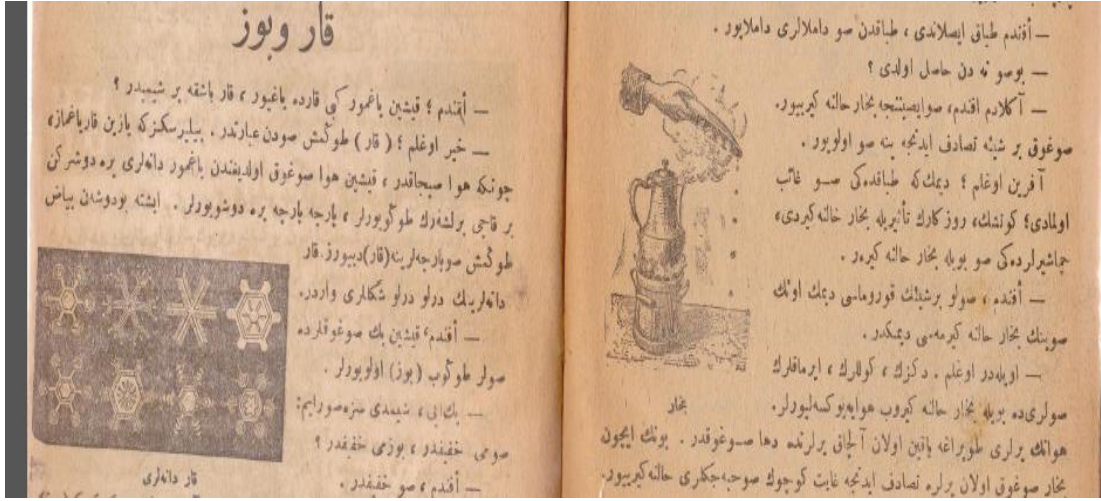 — أفندم طباق ايصلاندى ، طباقدن صو داملالرى داملايور .
— بوصو نه دن حاصل اولدى ؟
— آكلادم افندم، صوايصيننجه بخار حالنه كيرييور.
صوغوق بر شيئه تصادف ايدنجه ينه صو اولويور .
آفرين اوغلم ؛ ديمك كه طباقده كى صو غائب
اولمادى؛ كونشك، روزكارك تأثيريله بخار حالنه كيردى،
چماشيرلرده كى صو بويله بخار حالنه كيرر .
— أفندم ، صولو برشيئك قوروماسى ديمك اونك
صوينك بخار حالنه كيرمه سى ديمكدر .
— اويله در اوغلم . دكزك ، كوللرك ، ايرماقلرك
صولرى ده بويله بخار حالنه كيروب هوايه يوكسه ليورلر.
بخار
هوانك يرلرى طوپراغه ياقين اولان آلچاق يرلرنده دها صوغوقدر . بونك ايچون
بخار صوغوق اولان يرلره تصادف ايدنجه غايت كوچوك صو حبه جكلرى حالنه كيرييور.
قار وبوز
— أفندم ؛ قيشين ياغمور كبى قارده ياغيور ، قار باشقه بر شيميدر ؟
— خير اوغلم ؛ ( قار ) طوڭمش صودن عبارتدر . بيليرسكزكه يازين قارياغماز،
چونكه هوا صيجاقدر ، قيشين هوا صوغوق اولديغندن ياغمور دانه لرى يره دوشركن
بر قاچى برلشه رك طوڭويورلر ، پارچه پارچه يره دوشويورلر . ايشته بودوشه ن بياض
طوڭمش صوپارچه لرينه (قار) دييورز. قار
دانه لرينك درلو درلو شكللرى واردر.
— أفندم، قيشين پك صوغوقلرده
صولر طوڭوب (بوز) اولويورلر .
— پك اى ، شيمدى سزه صورايم:
صومى خفيفدر ، بوزمى خفيفدر ؟
— أفندم ، صو خفيفدر .
قار دانه لرى